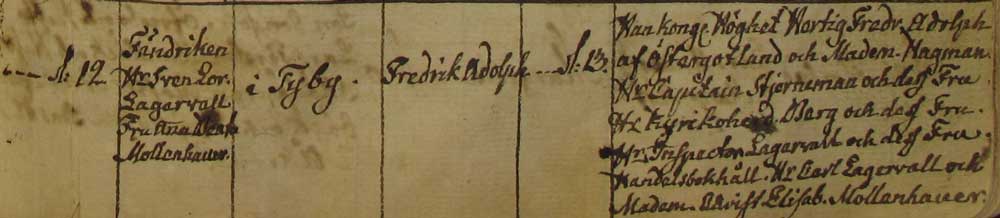 d: 12.
Fändriken
Hr Sven Lor.
Lagervall
Fru Ana Beata
Mollenhauer.
i Tyby.
Fredrik Adolph
d: 13.
Hans kongl. Höghet Hertig Fredr. Adolph
af Östergötland och Madem. Hagman.
Hr Capitain Stjernman och dess Fru
Hr Kyrkoherd. Berg och dess Fru.
Hr Inspector Lagervall och dess Fru
Handelsbokhåll. Hr Carl Lagervall och
Madem. Christ. Elisab. Mollenhauer.